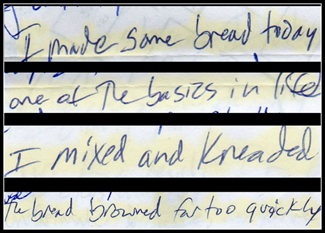 I made some bread today
one of the basics in life
I mixed and Kneaded
The bread browned far too quickly